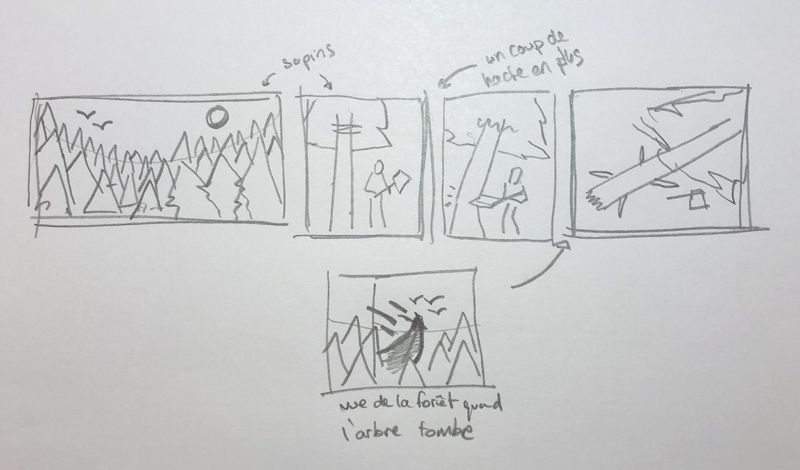 sapins
un coup de
hache en plus
vue de la forêt quand
l'arbre tombe